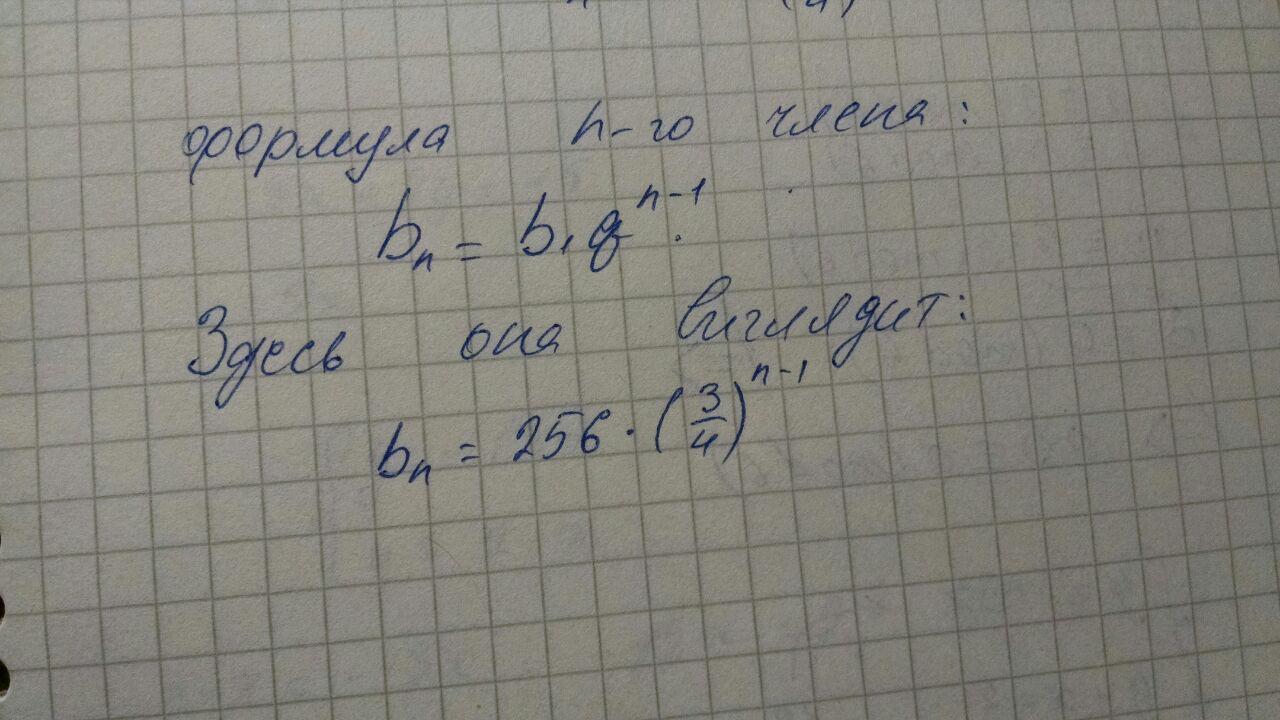 формула n-го члена:
bₙ = b₁ qⁿ⁻¹.
Здесь она виглядит:
bₙ = 256 · (3/4)ⁿ⁻¹